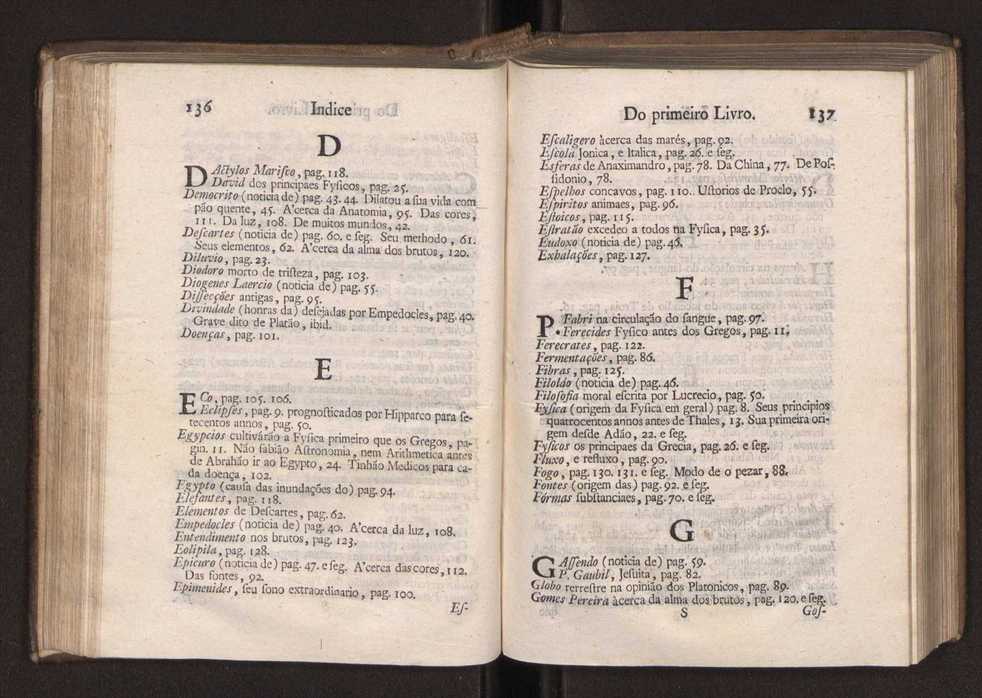 136 Indice
D
DActylos Marisco, pag. 118.
David dos principaes Fysicos, pag. 25.
Democrito (noticia de) pag. 43. 44. Dilatou a sua vida com
pão quente, 45. A'cerca da Anatomia, 95. Das cores,
111. Da luz, 108. De muitos mundos, 42.
Descartes (noticia de) pag. 60. e seg. Seu methodo, 61.
Seus elementos, 62. A'cerca da alma dos brutos, 120.
Diluvio, pag. 23.
Diodoro morto de tristeza, pag. 103.
Diogenes Laercio (noticia de) pag. 55.
Dissecções antigas, pag. 95.
Divindade (honras da) desejadas por Empedocles, pag. 40.
Grave dito de Platão, ibid.
Doenças, pag. 101.
E
ECo, pag. 105. 106.
Eclipses, pag. 9. prognosticados por Hipparco para se-
tecentos annos, pag. 50.
Egypcios cultivárão a Fysica primeiro que os Gregos, pa-
gin. 11. Não sabião Astronomia, nem Arithmetica antes
de Abrahão ir ao Egypto, 24. Tinhão Medicos para ca-
da doença, 102.
Egypto (causa das inundações do) pag. 94.
Elefantes, pag. 118.
Elementos de Descartes, pag. 62.
Empedocles (noticia de) pag. 40. A'cerca da luz, 108.
Entendimento nos brutos, pag. 123.
Eolipila, pag. 128.
Epicuro (noticia de) pag. 47. e seg. A'cerca das cores, 112.
Das fontes, 92.
Epimenides, seu sono extraordinario, pag. 100.
Es-
Do primeiro Livro. 137
Escaligero àcerca das marés, pag. 92.
Escola Jonica, e Italica, pag. 26. e seg.
Esferas de Anaximandro, pag. 78. Da China, 77. De Pos-
sidonio, 78.
Espelhos concavos, pag. 110. Ustorios de Proclo, 55.
Espiritos animaes, pag. 96.
Estoicos, pag. 115.
Estratão excedeo a todos na Fysica, pag. 35.
Eudoxo (noticia de) pag. 46.
Exhalações, pag. 127.
F
P. Fabri na circulação do sangue, pag. 97.
Ferecides Fysico antes dos Gregos, pag. 11.
Ferecrates, pag. 122.
Fermentações, pag. 86.
Fibras, pag. 125.
Filoláo (noticia de) pag. 46.
Filosofia moral escrita por Lucrecio, pag. 50.
Fysica (origem da Fysica em geral) pag. 8. Seus principios
quatrocentos annos antes de Thales, 13. Sua primeira ori-
gem desde Adão, 22. e seg.
Fysicos os principaes da Grecia, pag. 26. e seg.
Fluxo, e refluxo, pag. 90.
Fogo, pag. 130. 131. e seg. Modo de o pezar, 88.
Fontes (origem das) pag. 92. e seg.
Fórmas substanciaes, pag. 70. e seg.
G
GAssendo (noticia de) pag. 59.
P. Gaubil, Jesuita, pag. 82.
Globo terrestre na opinião dos Platonicos, pag. 89.
Gomes Pereira àcerca da alma dos brutos, pag. 120. e seg.
S Gos-